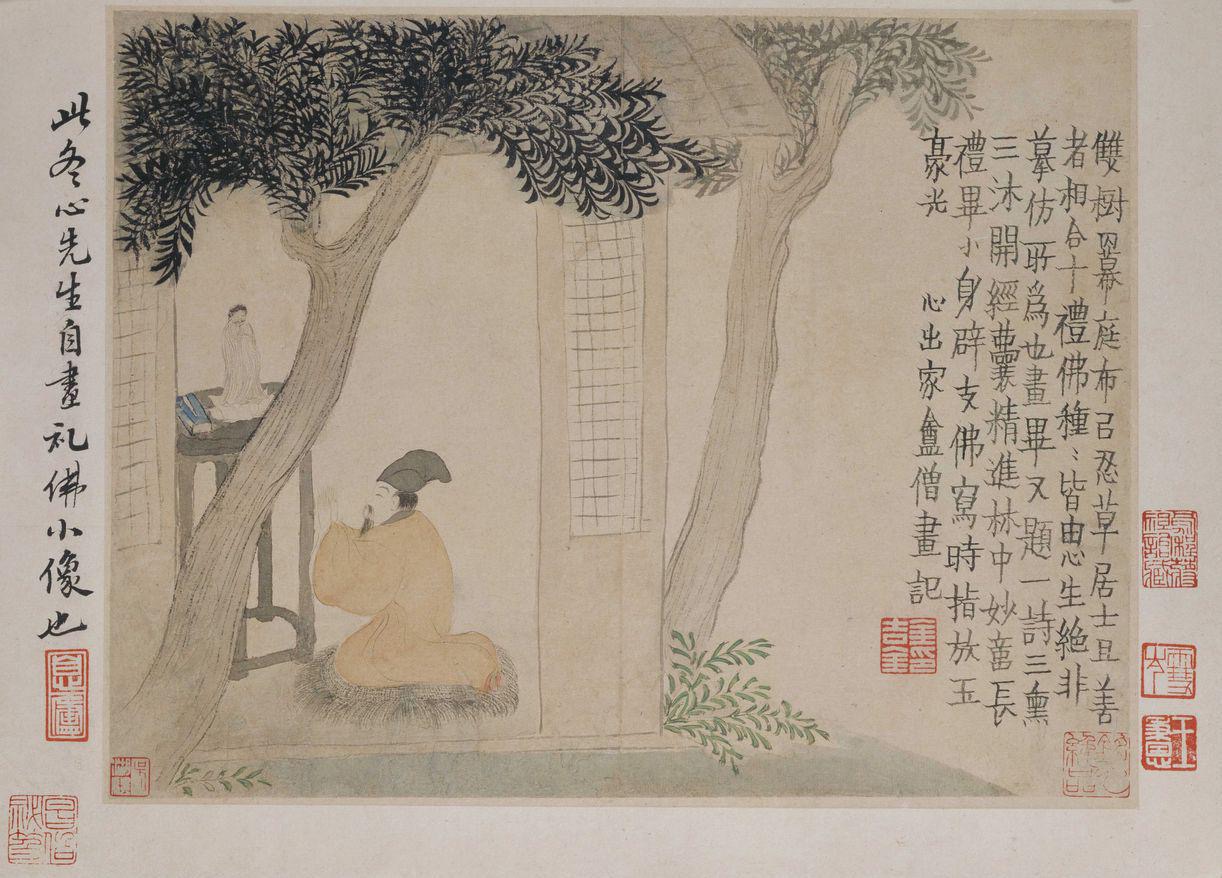 雙樹羃庭布㠯忍草居士且善
者相合十禮佛種〻皆由心生絶非
摹仿所為也畫畢又題一詩三熏
三沐開經囊精進林中妙長
禮畢小身辟支佛寫時指放五
豪光 心出家盦僧畫記
金吉金印
此冬心先生自畫礼佛小像也
息廬